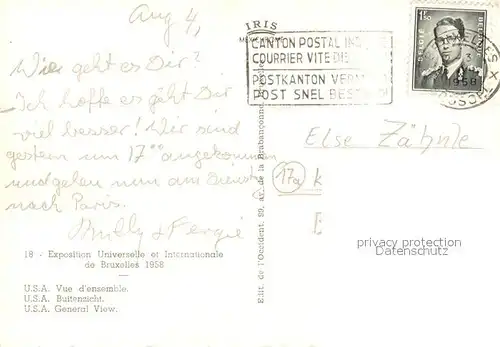 Aug 4,
Wie geht es Dir?
Ich hoffe es geht Dir
viel besser! Wir sind
gestern um 17°° angekommen
und gehen nun am Dienstag
nach Paris.
Milly & Fergie
18 - Exposition Universelle et Internationale
de Bruxelles 1958
U.S.A. Vue d'ensemble.
U.S.A. Buitenzicht.
U.S.A. General View.
IRIS
Edit. de l'Occident. 89, av. de la Brabançonne,
CANTON POSTAL
COURRIER VITE
POSTKANTON
POST SNEL
1F50
BELGIE
BELGIQUE
1958
Else Zähnle
17a
privacy protection
Datenschutz